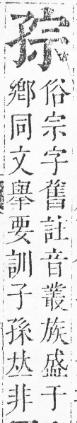 孮
俗宗字舊註音叢族盛于
鄉同文舉要訓子孫𠀤非